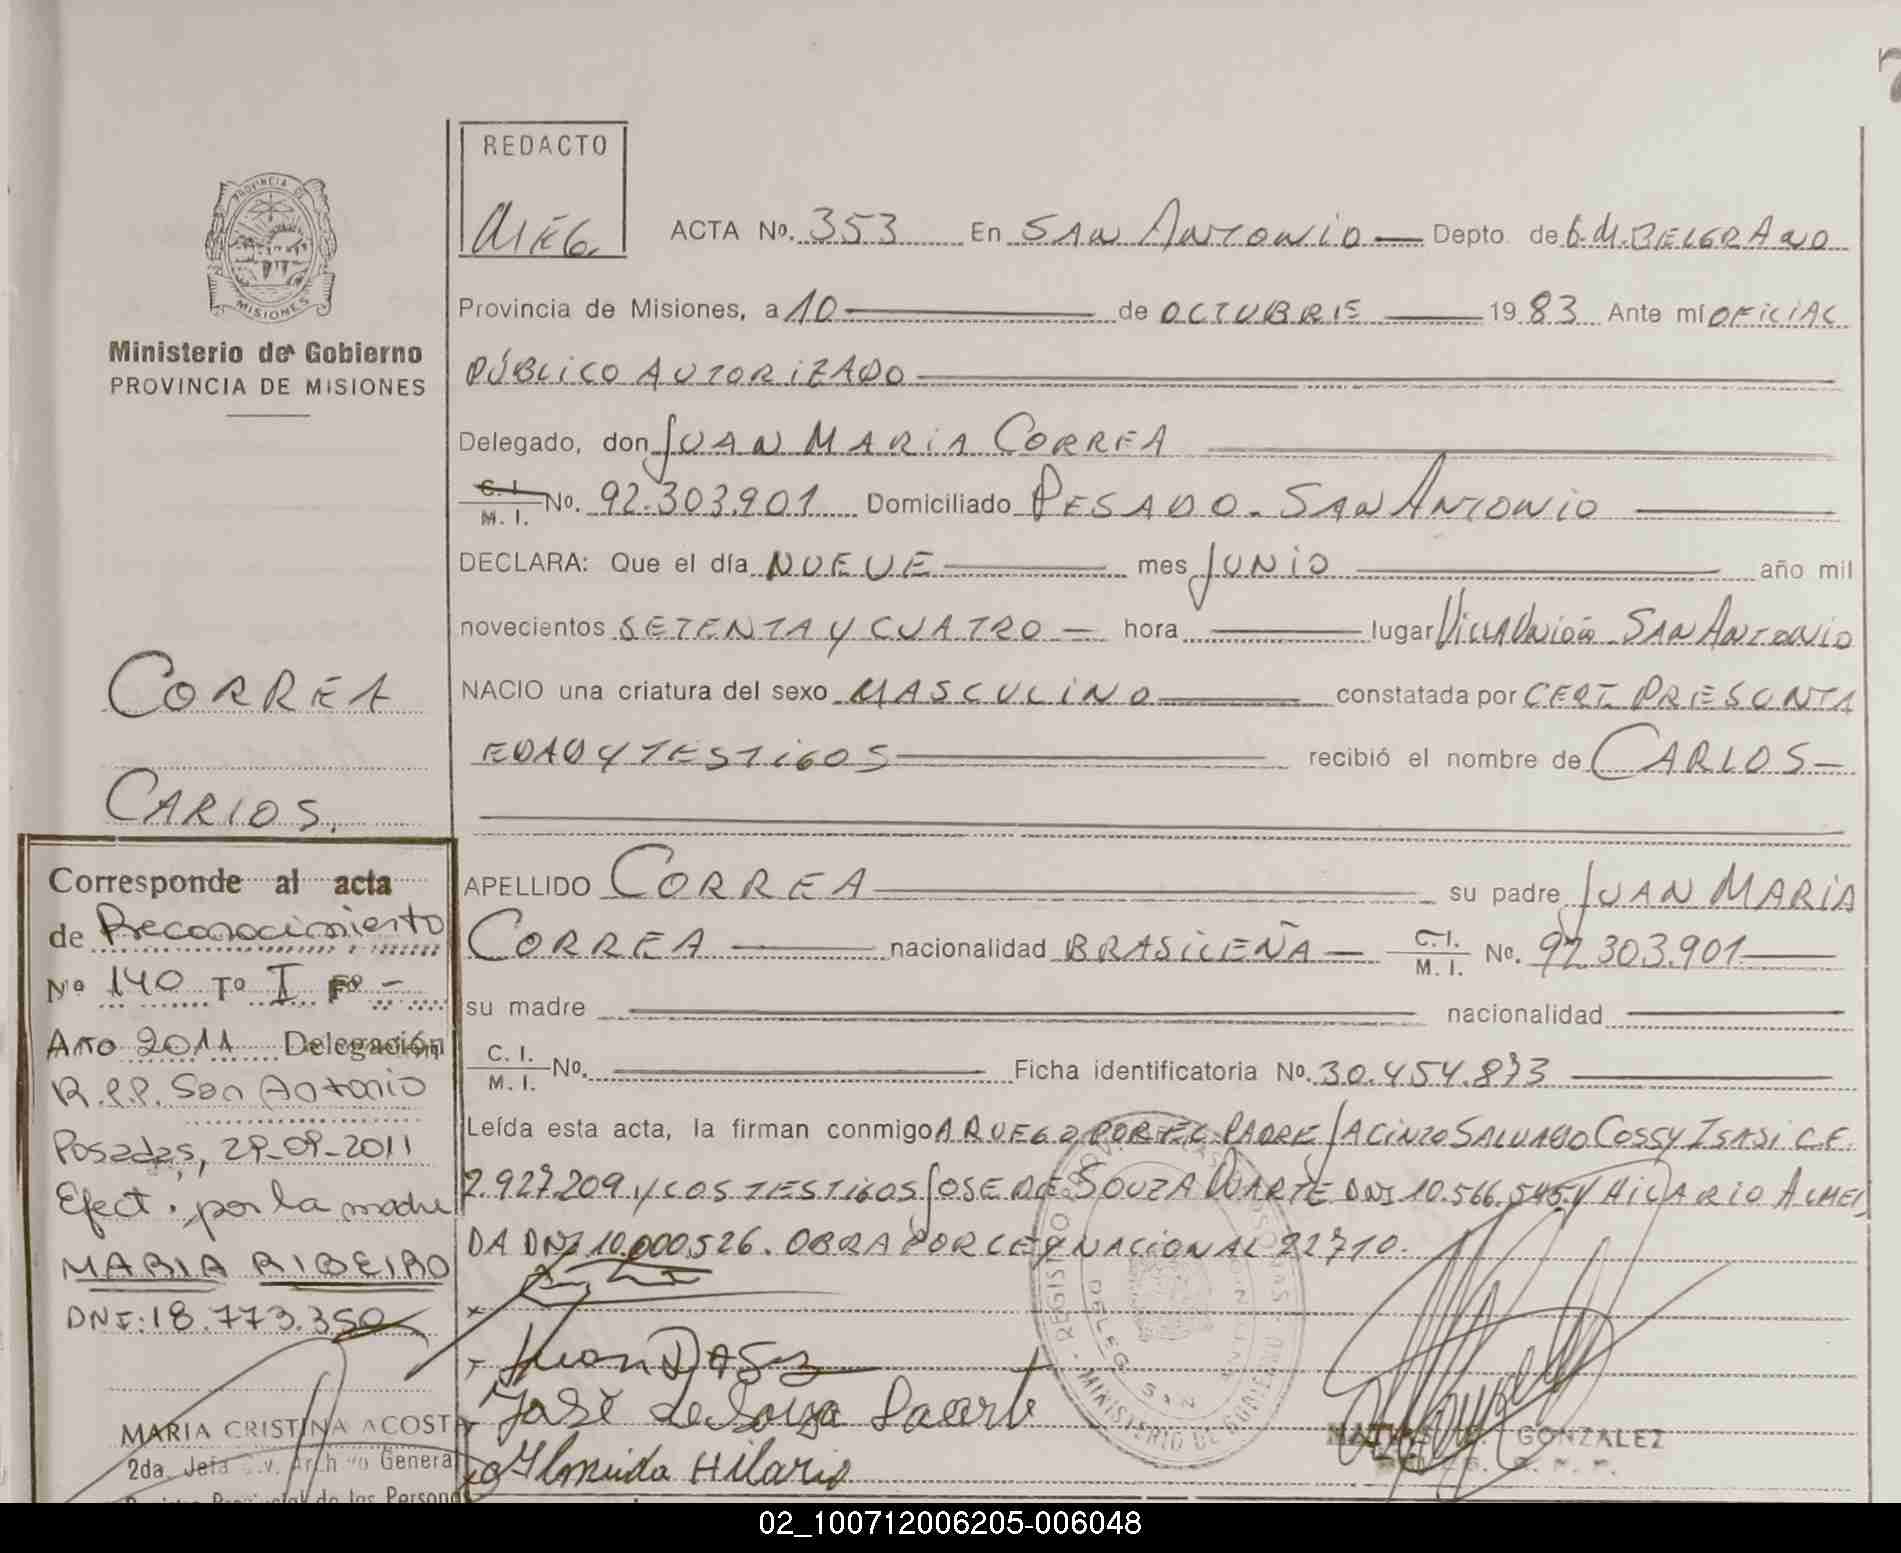 7
REDACTO
PROVINCIA DE
MISIONES
Ministerio de Gobierno
PROVINCIA DE MISIONES
ACTA No. 353 En SAN ANTONIO — Depto. de G.M.BELGRANO
Provincia de Misiones, a 10 — de OCTUBRE — 19 83 Ante mí OFICIAL
PÚBLICO AUTORIZADO —
Delegado, don JUAN MARIA CORREA —
C. I. / M. I. No. 92.303.901 Domiciliado PESADO - SAN ANTONIO —
DECLARA: Que el día NUEVE — mes JUNIO — año mil
novecientos SETENTA Y CUATRO — hora — lugar VILLA UNIÓN SAN ANTONIO
NACIO una criatura del sexo MASCULINO — constatada por CERT. PRESUNTA
EDAD Y TESTIGOS — recibió el nombre de CARLOS —
APELLIDO CORREA — su padre JUAN MARIA
CORREA — nacionalidad BRASILEÑA — C. I. / M. I. No. 92.303.901 —
su madre — nacionalidad —
C. I. / M. I. No. — Ficha identificatoria No. 30.454.873 —
Leída esta acta, la firman conmigo A RUEGO POR EL PADRE JACINTO SALVADO COSSY ISASI C.F.
2.927.209 Y LOS TESTIGOS JOSE DE SOUZA DUARTE DNI 10.566.545 Y HILARIO ALMEI
DA DNI 10.000.526. OBRA POR LEY NACIONAL 22710.
José de Souza
Almeida Hilario
GONZALEZ
CORREA
CARLOS.
Corresponde al acta
de Reconocimiento
Nº 140 Tº I Fº -
Año 2011 Delegación
R.P.P. San Antonio
Posadas, 29-09-2011
Efect. por la madre
MARIA RIBEIRO
DNI: 18.773.350
MARIA CRISTINA ACOSTA
2da. Jefa Archivo General
de las Personas
02_100712006205-006048